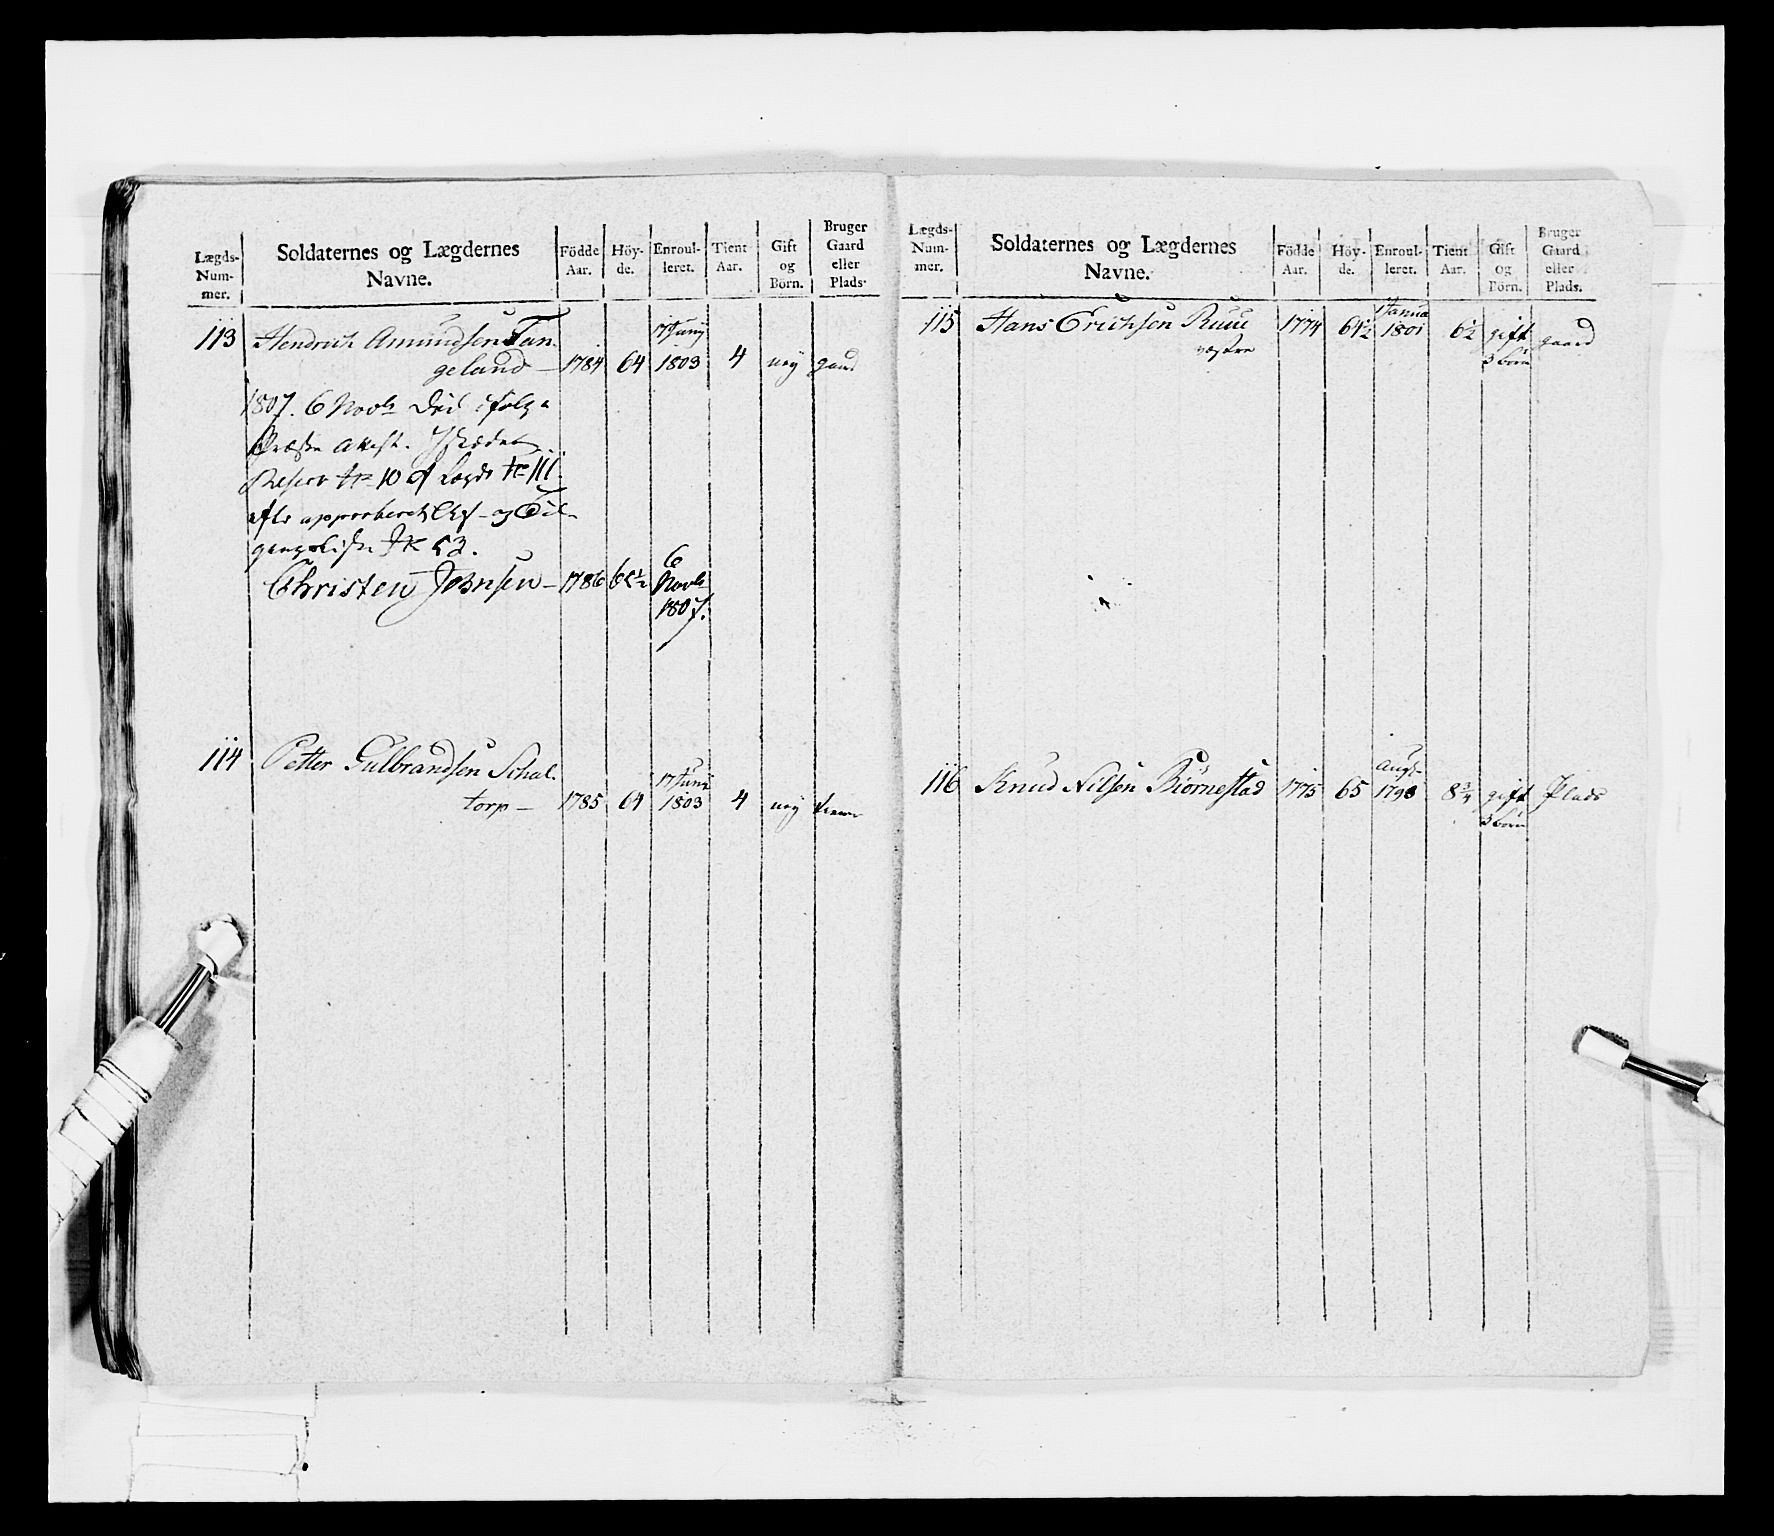 Lægds-
Num-
mer.
Soldaternes og Lægdernes
Navne.
Födde
Aar.
Höy-
de.
Enroul-
leret.
Tient
Aar.
Gift
og
Börn.
Bruger
Gaard
eller
Plads.
113 Hendrich Amundsen Tan-
geland — 1784 64 17 Junij 1803 4 neij gaard
1807. 6 Novbr Död ifölge
Præste Attest.
Reserv No 10 af Lægd No 111
efter approberet Afg- og Til-
gangsliste No 53.
Christen Jensen — 1786 65½ 6
Novbr
1807.
114 Petter Gulbrandsen Schal-
torp — 1785 64 17 Junij 1803 4 neij
Lægds-
Num-
mer.
Soldaternes og Lægdernes
Navne.
Födde
Aar.
Höy-
de.
Enroul-
leret.
Tient
Aar.
Gift
og
Börn.
Bruger
Gaard
eller
Plads.
115 Hans Erichsen Ruuu 1774 64½ Janua 1801 6½ gift gaard
vestre 3 börn
116 Knud Nilsen Biörnestad 1775 65 Augt 1798 8¾ gift Plads
3 börn